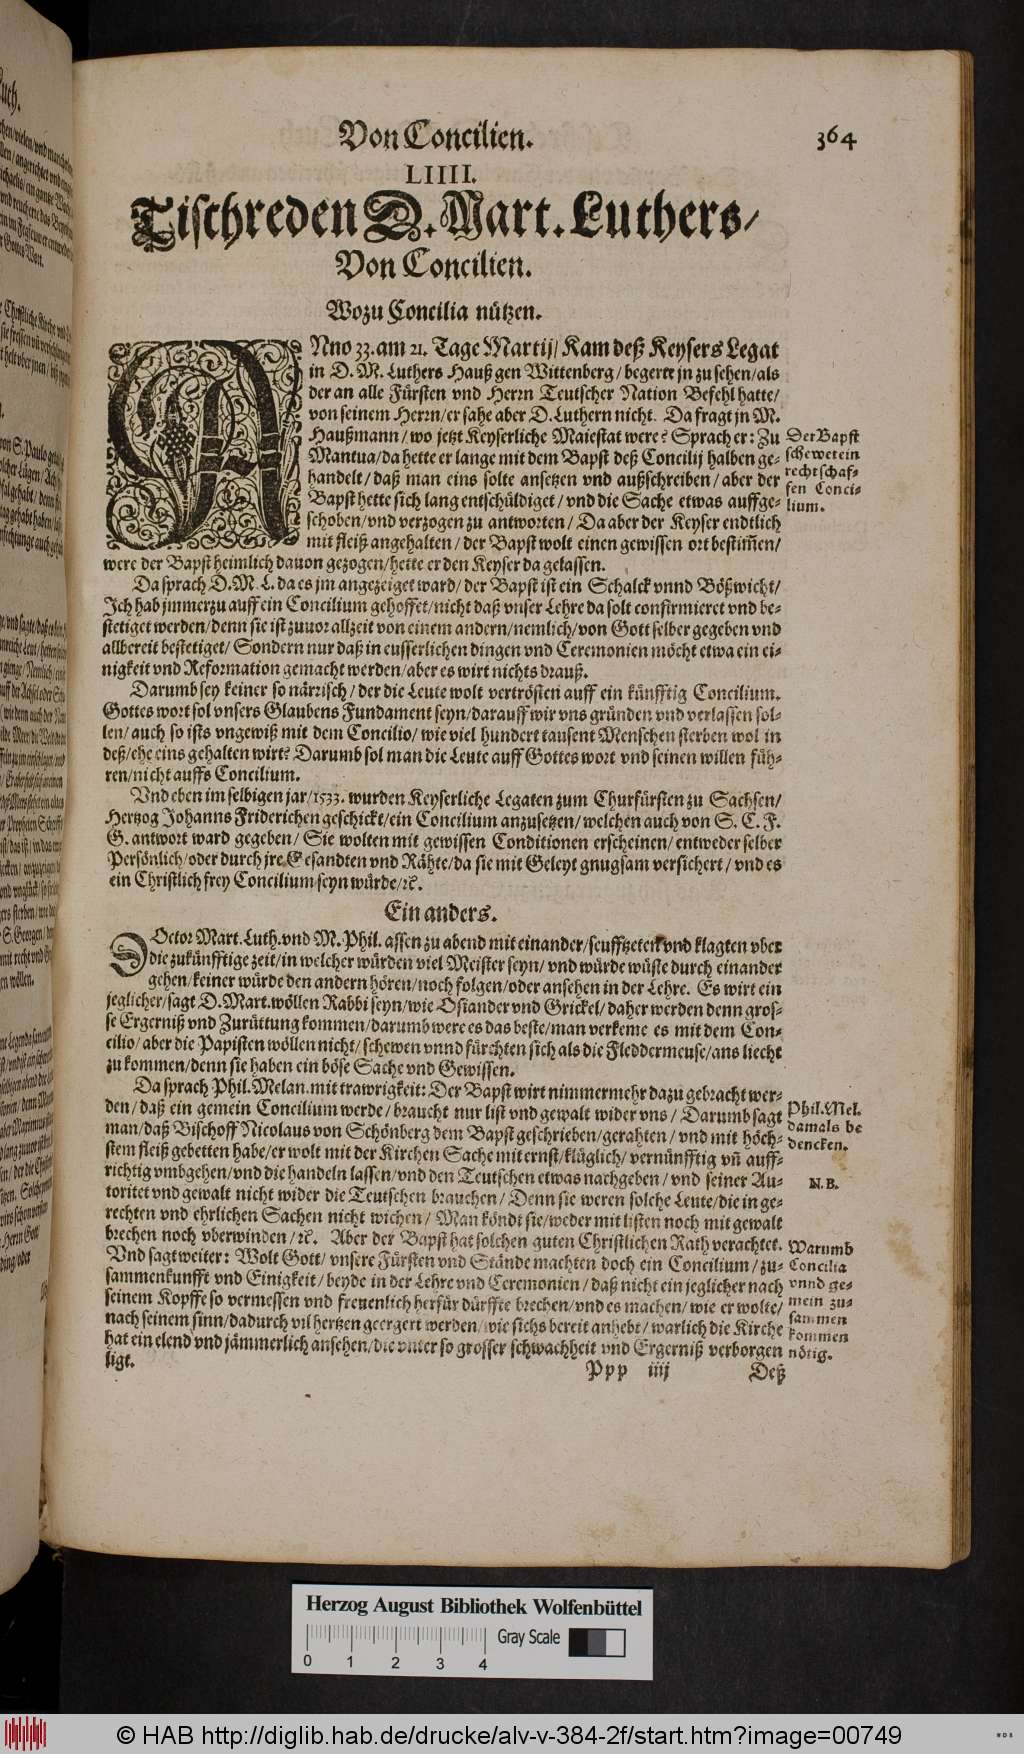 Von Concilien.
364
LIIII.
Tischreden D. Mart. Luthers/
Von Concilien.
Wozu Concilia nützen.
ANno 33. am 21. Tage Martij/ Kam deß Keysers Legat
in D. M. Luthers Hauß gen Wittenberg/ begerte jn zu sehen/als
der an alle Fürsten vnd Herrn Teutscher Nation Befehl hatte/
von seinem Herrn/er sahe aber D. Luthern nicht. Da fragt jn M.
Haußmann/ wo jetzt Keyserliche Maiestat were? Sprach er: Zu
Mantua/da hette er lange mit dem Bapst deß Concilij halben ge-
handelt/ daß man eins solte ansetzen vnd außschreiben/ aber der
Bapst hette sich lang entschüldiget/ vnd die Sache etwas auffge-
schoben/vnd verzogen zu antworten/ Da aber der Keyser endtlich
mit fleiß angehalten/ der Bapst wolt einen gewissen ort bestim̃en/
were der Bapst heimlich dauon gezogen/hette er den Keyser da gelassen.
Der Bapst
schewet ein
recht schaf-
fen Conci-
lium.
Da sprach D. M. L. da es jm angezeiget ward/ der Bapst ist ein Schalck vnnd Bößwicht/
Ich hab jmmerzu auff ein Concilium gehoffet/nicht daß vnser Lehre da solt confirmieret vnd be-
stetiget werden/denn sie ist zuuor allzeit von einem andern/nemlich/von Gott selber gegeben vnd
allbereit bestetiget/ Sondern nur daß in eusserlichen dingen vnd Ceremonien möcht etwa ein ei-
nigkeit vnd Reformation gemacht werden/aber es wirt nichts drauß.
Darumb sey keiner so närrisch/ der die Leute wolt vertrösten auff ein künfftig Concilium.
Gottes wort sol vnsers Glaubens Fundament seyn/darauff wir vns gründen vnd verlassen sol-
len/ auch so ists vngewiß mit dem Concilio/ wie viel hundert tausent Menschen sterben wol in
deß/ehe eins gehalten wirt? Darumb sol man die Leute auff Gottes wort vnd seinen willen füh-
ren/nicht auffs Concilium.
Vnd eben im selbigen jar/1533. wurden Keyserliche Legaten zum Churfürsten zu Sachsen/
Hertzog Johanns Friderichen geschickt/ein Concilium anzusetzen/ welchen auch von S. C. F.
G. antwort ward gegeben/ Sie wolten mit gewissen Conditionen erscheinen/ entweder selber
Persönlich/oder durch jre Gesandten vnd Rähte/da sie mit Geleyt gnugsam versichert/ vnd es
ein Christlich frey Concilium seyn würde/ꝛc.
Ein anders.
DOctor Mart. Luth. vnd M. Phil. assen zu abend mit einander/seufftzeten vnd klagten vber
die zukünfftige zeit/in welcher würden viel Meister seyn/ vnd würde wüste durch einander
gehen/keiner würde den andern hören/noch folgen/oder ansehen in der Lehre. Es wirt ein
jeglicher/sagt D. Mart. wöllen Rabbi seyn/wie Osiander vnd Grickel/ daher werden denn gros-
se Ergerniß vnd Zurüttung kommen/darumb were es das beste/man verkeme es mit dem Con-
cilio/ aber die Papisten wöllen nicht/ schewen vnnd fürchten sich als die Fleddermeuse/ans liecht
zu kommen/denn sie haben ein böse Sache vnd Gewissen.
Da sprach Phil. Melan. mit trawrigkeit: Der Bapst wirt nimmermehr dazu gebracht wer-
den/ daß ein gemein Concilium werde/ braucht nur list vnd gewalt wider vns/ Darumb sagt
man/daß Bischoff Nicolaus von Schönberg dem Bapst geschrieben/gerahten/ vnd mit höch-
stem fleiß gebetten habe/er wolt mit der Kirchen Sache mit ernst/kläglich/ vernünfftig vñ auff-
richtig vmbgehen/vnd die handeln lassen/vnd den Teutschen etwas nachgeben/ vnd seiner Au-
toritet vnd gewalt nicht wider die Teutschen brauchen/ Denn sie weren solche Leute/die in ge-
rechten vnd ehrlichen Sachen nicht wichen/ Man köndt sie/weder mit listen noch mit gewalt
brechen noch vberwinden/ꝛc. Aber der Bapst hat solchen guten Christlichen Rath verachtet.
Vnd sagt weiter: Wolt Gott/ vnsere Fürsten vnd Stände machten doch ein Concilium/ zu-
sammenkunfft vnd Einigkeit/ beyde in der Lehre vnd Ceremonien/ daß nicht ein jeglicher nach
seinem Kopffe so vermessen vnd freuenlich herfür dürffte brechen/vnd es machen/ wie er wolte/
nach seinem sinn/dadurch vil hertzen geergert werden/wie sichs bereit anhebt/ warlich die Kirche
hat ein elend vnd jämmerlich ansehen/die vnter so grosser schwachheit vnd Ergerniß verborgen
ligt.
Phil. Mel.
damals be
dencken.
N. B.
Warumb
Concilia
vnnd ge-
mein zu-
sammen
kommen
nötig.
Ppp iiij
Deß
Herzog August Bibliothek Wolfenbüttel
Gray Scale
0 1 2 3 4
© HAB http://diglib.hab.de/drucke/alv-v-384-2f/start.htm?image=00749